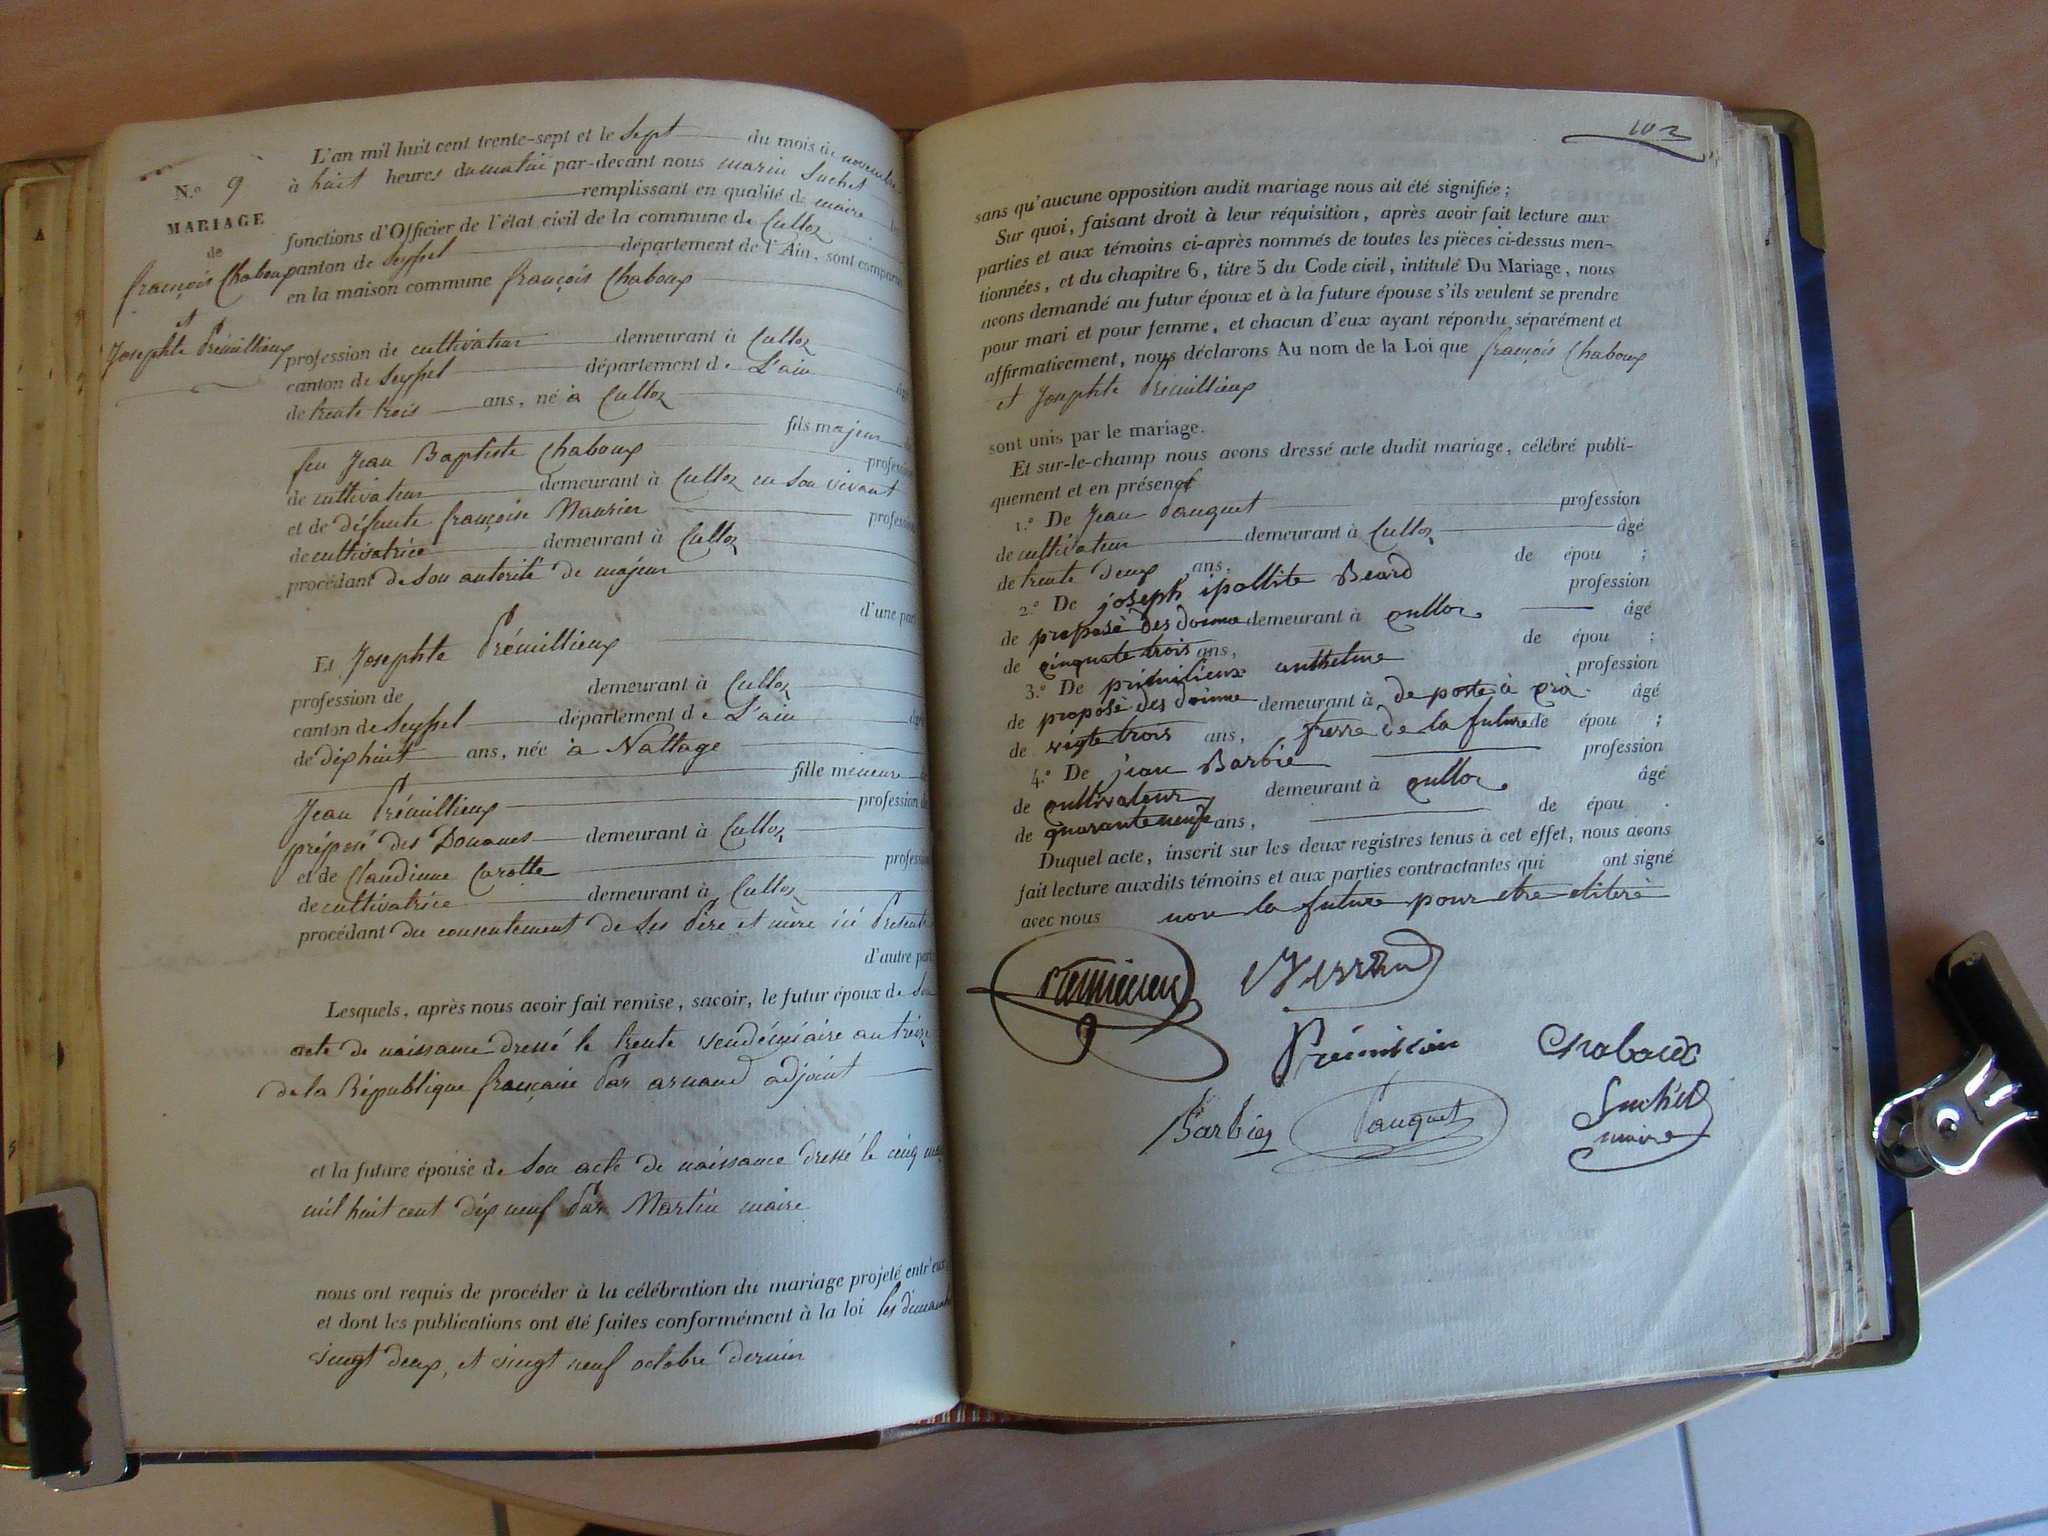 L'an mil huit cent trente-sept et le sept du mois de novembre
N.o 9
à huit heures du matin par-devant nous marin Suchet
remplissant en qualité de maire
MARIAGE
fonctions d'Officier de l'état civil de la commune de Culloz
de
canton de Seyssel département de l'Ain, sont comparus
françois Chaboux
en la maison commune françois Chaboux
et
Josephte Prémillieux
profession de cultivateur demeurant à Culloz
canton de Seyssel département de L'ain
de trente trois ans, né à Culloz
fils majeur
feu Jean Baptiste Chaboux
de cultivateur demeurant à Culloz en son vivant
et de défunte françoise Maurier
de cultivatrice demeurant à Culloz
procédant de son autorité de majeur
d'une part
Et Josephte Prémillieux
profession de demeurant à Culloz
canton de Seyssel département de L'ain
de dix huit ans, née à Nattage
fille mineure
Jean Prémillieux profession de
préposé des Douanes demeurant à Culloz
et de Claudinne Carotte
de cultivatrice demeurant à Culloz
procédant du consentement de ses Père et mère ici Présents
d'autre part
Lesquels, après nous avoir fait remise, savoir, le futur époux de son
acte de naissance dressé le trente vendémiaire an treize
de la République française Par arnaud adjoint
et la future épouse de son acte de naissance dressé le cinq mars
mil huit cent dix neuf Par Martin maire
nous ont requis de procéder à la célébration du mariage projeté entr'eux
et dont les publications ont été faites conformément à la loi les dimanches
vingt deux, et vingt neuf octobre dernier
102
sans qu'aucune opposition audit mariage nous ait été signifiée ;
Sur quoi, faisant droit à leur réquisition, après avoir fait lecture aux
parties et aux témoins ci-après nommés de toutes les pièces ci-dessus men-
tionnées, et du chapitre 6, titre 5 du Code civil, intitulé Du Mariage, nous
avons demandé au futur époux et à la future épouse s'ils veulent se prendre
pour mari et pour femme, et chacun d'eux ayant répondu séparément et
affirmativement, nous déclarons Au nom de la Loi que françois Chaboux
et Josephte Prémillieux
sont unis par le mariage.
Et sur-le-champ nous avons dressé acte dudit mariage, célébré publi-
quement et en présence
1.o De Jean Pauquet profession
de cultivateur demeurant à Culloz âgé
de trente deux ans, de épou ;
2.o De joseph ipollite Berard profession
de proposé des douane demeurant à Culloz âgé
de cinquate trois ans, de épou ;
3.o De primilieux anthelme profession
de proposé des douane demeurant à de poste à âgé
de vigte trois ans, frerre de la future de épou ;
4.o De jean Barbié profession
de cultivateur demeurant à Culloz âgé
de quarante neufe ans, de épou .
Duquel acte, inscrit sur les deux registres tenus à cet effet, nous avons
fait lecture auxdits témoins et aux parties contractantes qui ont signé
avec nous non la future pour etre eliteré
Prémilieux
Chaboux
Barbier Pauquet Suchet
maire